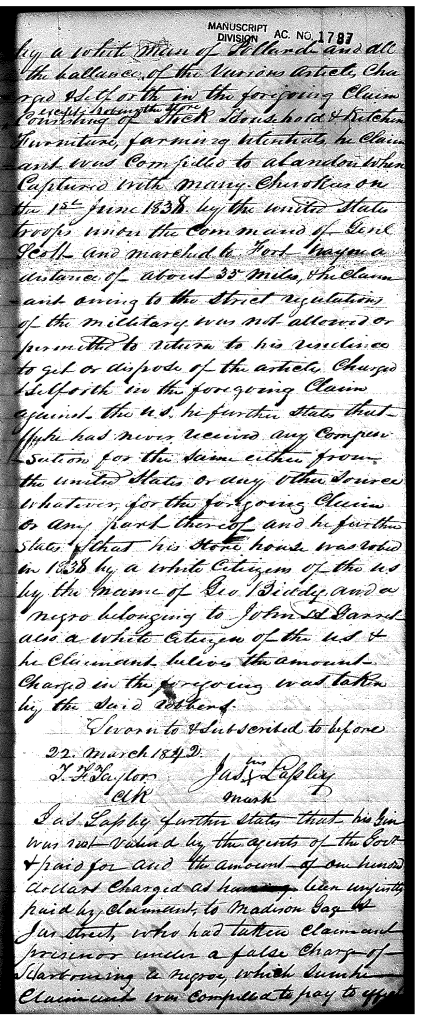 MANUSCRIPT
DIVISION AC. NO. 1787
by a white man of and all
the ballance of the Various articles Cha
rged & setforth in the foregoing Claim
except robing the store
Consisting of Stock Household & Kitchen
Furniture, farming utentials, he Claim
ant was Compelled to abandon when
Captured with many Cherokees on
the 1st June 1838 by the united States
troops under the Command of Genl
Scott and marched to Fort Payne a
distance of about 35 miles, & he Claim
ant owing to the Strict regulations
of the millitary was not allowed or
permitted to return to his residence
to get or dispose of the articles Charged
& setforth in the foregoing Claim
against the U.S. he further States that
he has never received any Compen
sation for the same either from
the united States or any other Source
whatever, for the foregoing Claim
or any part thereof and he further
States that his Store house was robed
in 1838 by a white Citizen of the US
by the name of Geo. Biddy and a
negro belonging to John
also a white Citizen of the U.S &
he Claimant belives the amount
Charged in the foregoing was taken
by the Said robbers.
Sworn to & Subscribed to before
22. March 1842.
T. F. Taylor Jas his X Lapsley
Clk mark
Jas. Lapsley further states that his
was not valued by the agents of the Govt
& paid for and the amount of one hundred
dollars Charged as having been unjustly
paid by Claimant, to Madison
Jas Street, who had taken Claimant
prisenor under a false Charge of
Harbouring a negroe, which Sum he
Claimant was Compelled to pay to